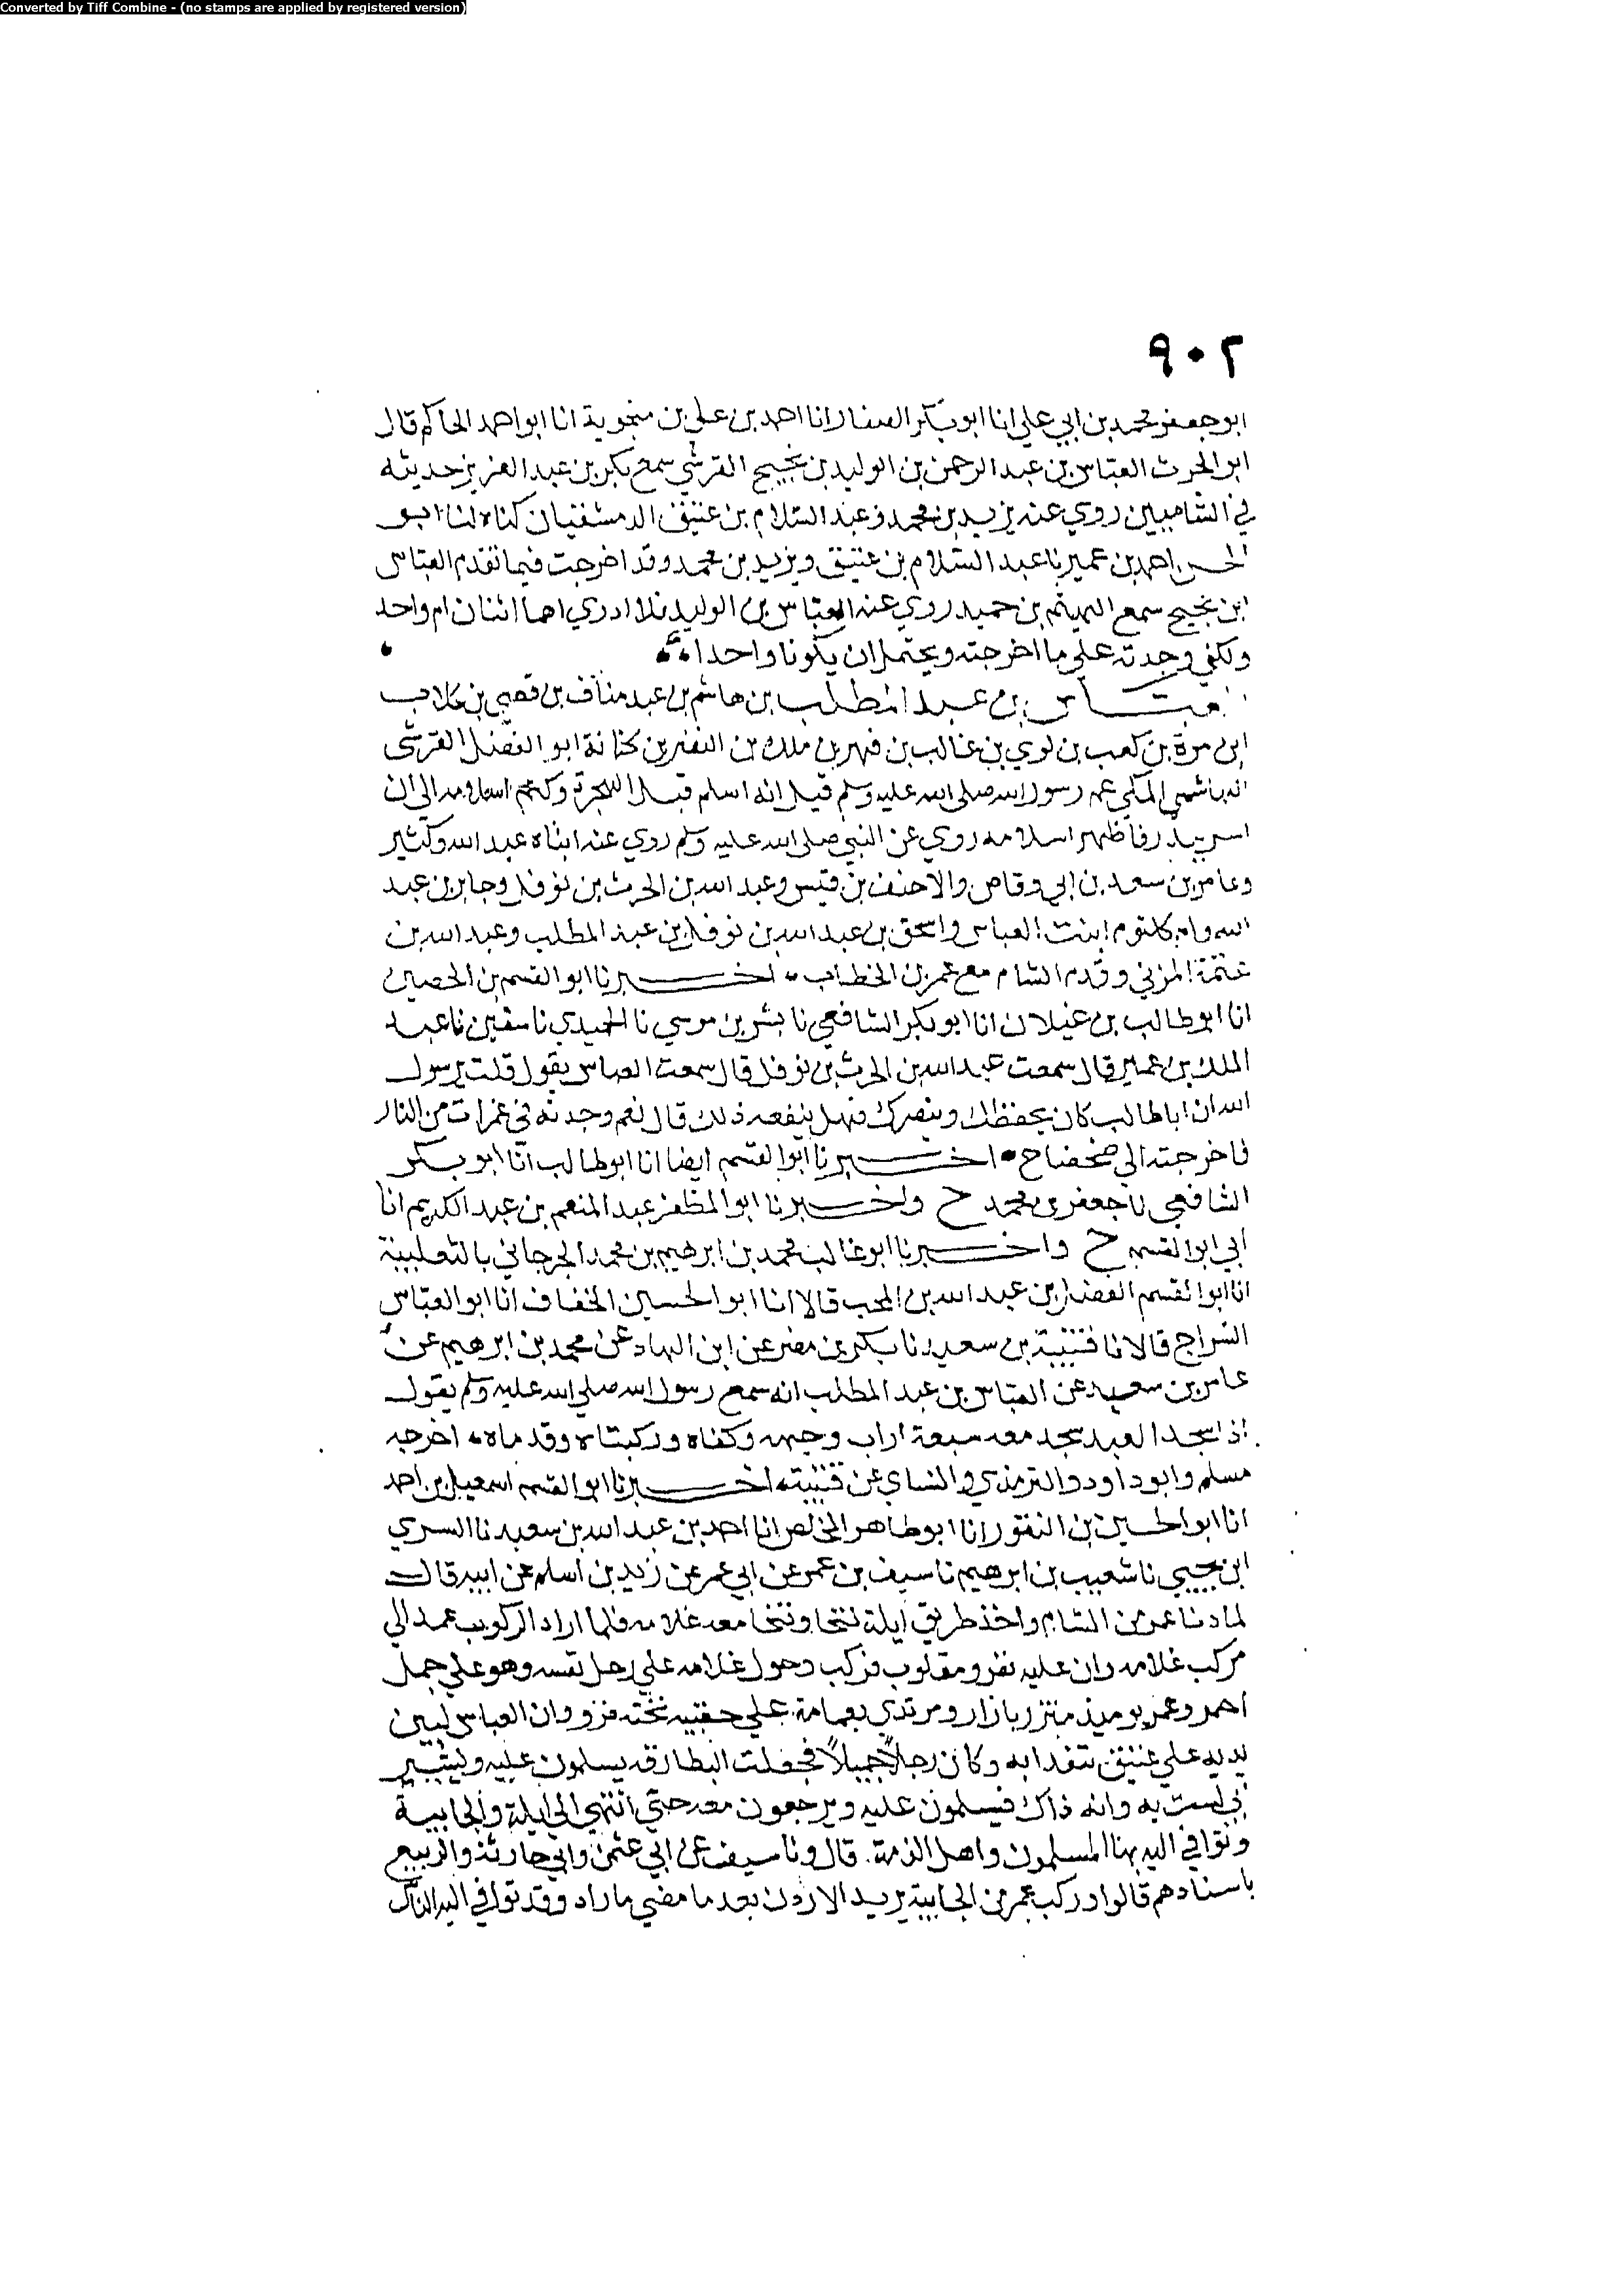 Converted by Tiff Combine - (no stamps are applied by registered version)
٩٠٢
ابو جعفر محمد بن ابي علي انا ابو بكر الصفار انا احمد بن علي بن منجوية انا ابو احمد الحاكم قال
ابو الحرث العباس بن عبد الرحمن بن الوليد بن نجيح القرشي سمع بكر بن عبد العزيز حديثه
في الشاميين روي عنه يزيد بن محمد وعبد السلام بن عتيق الدمشقيان كناه لنا ابو
الحسن احمد بن عمير نا عبد السلام بن عتيق ويزيد بن محمد وقد اخرجت فيما تقدم العباس
ابن نجيح سمع الهيثم بن حميد روي عنه العباس بن الوليد فلا ادري اهما اثنان ام واحد
ولكني وجدته علي ما اخرجته ويحتمل ان يكونا واحدا
عباس بن عبد المطلب بن هاشم بن عبد مناف بن قصي بن كلاب
ابن مرة بن كعب بن لوي بن غالب بن فهر بن ملك بن النضر بن كنانة ابو الفضل القرشي
الهاشمي المكي عم رسول الله صلى الله عليه وسلم قيل انه اسلم قبل الهجرة وكتم اسلامه الي ان
اسر ببدر فاظهر اسلامه روي عن النبي صلى الله عليه وسلم روي عنه ابناه عبد الله وكثير
وعامر بن سعد بن ابي وقاص والاحنف بن قيس وعبد الله بن الحرث بن نوفل وجابر بن عبد
الله وام كلثوم ابنت العباس واسحق بن عبد الله بن نوفل بن عبد المطلب وعبد الله بن
عنمة المزني وقدم الشام مع عمر بن الخطاب اخبرنا ابو القسم بن الحصين
انا ابو طالب بن غيلان انا ابو بكر الشافعي نا بشر بن موسي نا الحميدي نا سفين نا عبد
الملك بن عمير قال سمعت عبد الله بن الحرث بن نوفل قال سمعت العباس يقول قلت يرسول
الله ان ابا طالب كان يحفظك وينصرك فهل ينفعه ذلك قال نعم وجدته في غمرات من النار
فاخرجته الي ضحضاح اخبرنا ابو القسم ايضا انا ابو طالب انا ابو بكر
الشافعي نا جعفر بن محمد ح واخبرنا ابو المظفر عبد المنعم بن عبد الكريم انا
ابي ابو القسم ح واخبرنا ابو غالب محمد بن ابرهيم بن محمد الجرجاني بالثعلبية
انا ابو القسم الفضل بن عبد الله بن المحب قالا انا ابو الحسين الخفاف انا ابو العباس
السراج قالا نا قتيبة بن سعيد نا بكر بن مضر عن ابن الهاد عن محمد بن ابرهيم عن
عامر بن سعيد عن العباس بن عبد المطلب انه سمع رسول الله صلي الله عليه وسلم يقول
اذا سجد العبد سجد معه سبعة اراب وجهه وكفاه وركبتاه وقدماه اخرجه
مسلم وابو داود والترمذي والنساي عن قتيبة اخبرنا ابو القسم اسمعيل بن احمد
انا ابو الحسين بن النقور انا ابو طاهر المخلص انا احمد بن عبد الله بن سعيد نا السري
ابن يحيي نا شعيب بن ابرهيم نا سيف بن عمر عن ابي عمر عن زيد بن اسلم عن ابيه قال
لما دنا عمر من الشام واخذ طريق ايلة تنحا وتنحا معه غلامه فلما اراد الركوب عمد الي
مركب غلامه وان عليه لفرو مقلوب فركب وحول غلامه علي رحل نفسه وهو علي جمل
احمر وعمر يوميذ متزر بازار ومرتدي بعمامة علي حقبيه تحته فرو وان العباس لبين
يديه علي عتيق يتغدا به وكان رجلاً جميلاً فجعلت البطارقه يسلمون عليه ويشير
اني لست به وانه ذاك فيسلمون عليه ويرجعون معه حتي انتهي الي ايلة والجابية
وتوافي اليه بها المسلمون واهل الذمة. قال ونا سيف عن ابي عثمن وابي حارثة والربيع
باسنادهم قالوا وركب عمر من الجابية يريد الاردن بعد ما مضي ما اراد وقد توافي اليه الناس